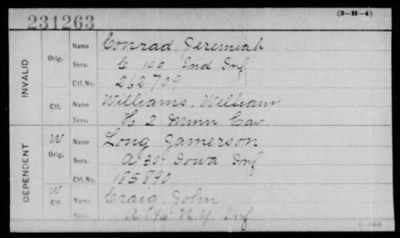 231263
(3-H-4)
INVALID
Orig. Name Conrad, Jeremiah
Serv. C 100 Ind Inf
Ctf. No. 262739
Ctf. Name Williams, William
Serv. H 2 Minn Cav
DEPENDENT
W Orig. Name Long Jamerson
Serv. A 39 Iowa Inf
Ctf. No. 185890
W Ctf. Name Craig John
Serv. A N.Y. Inf